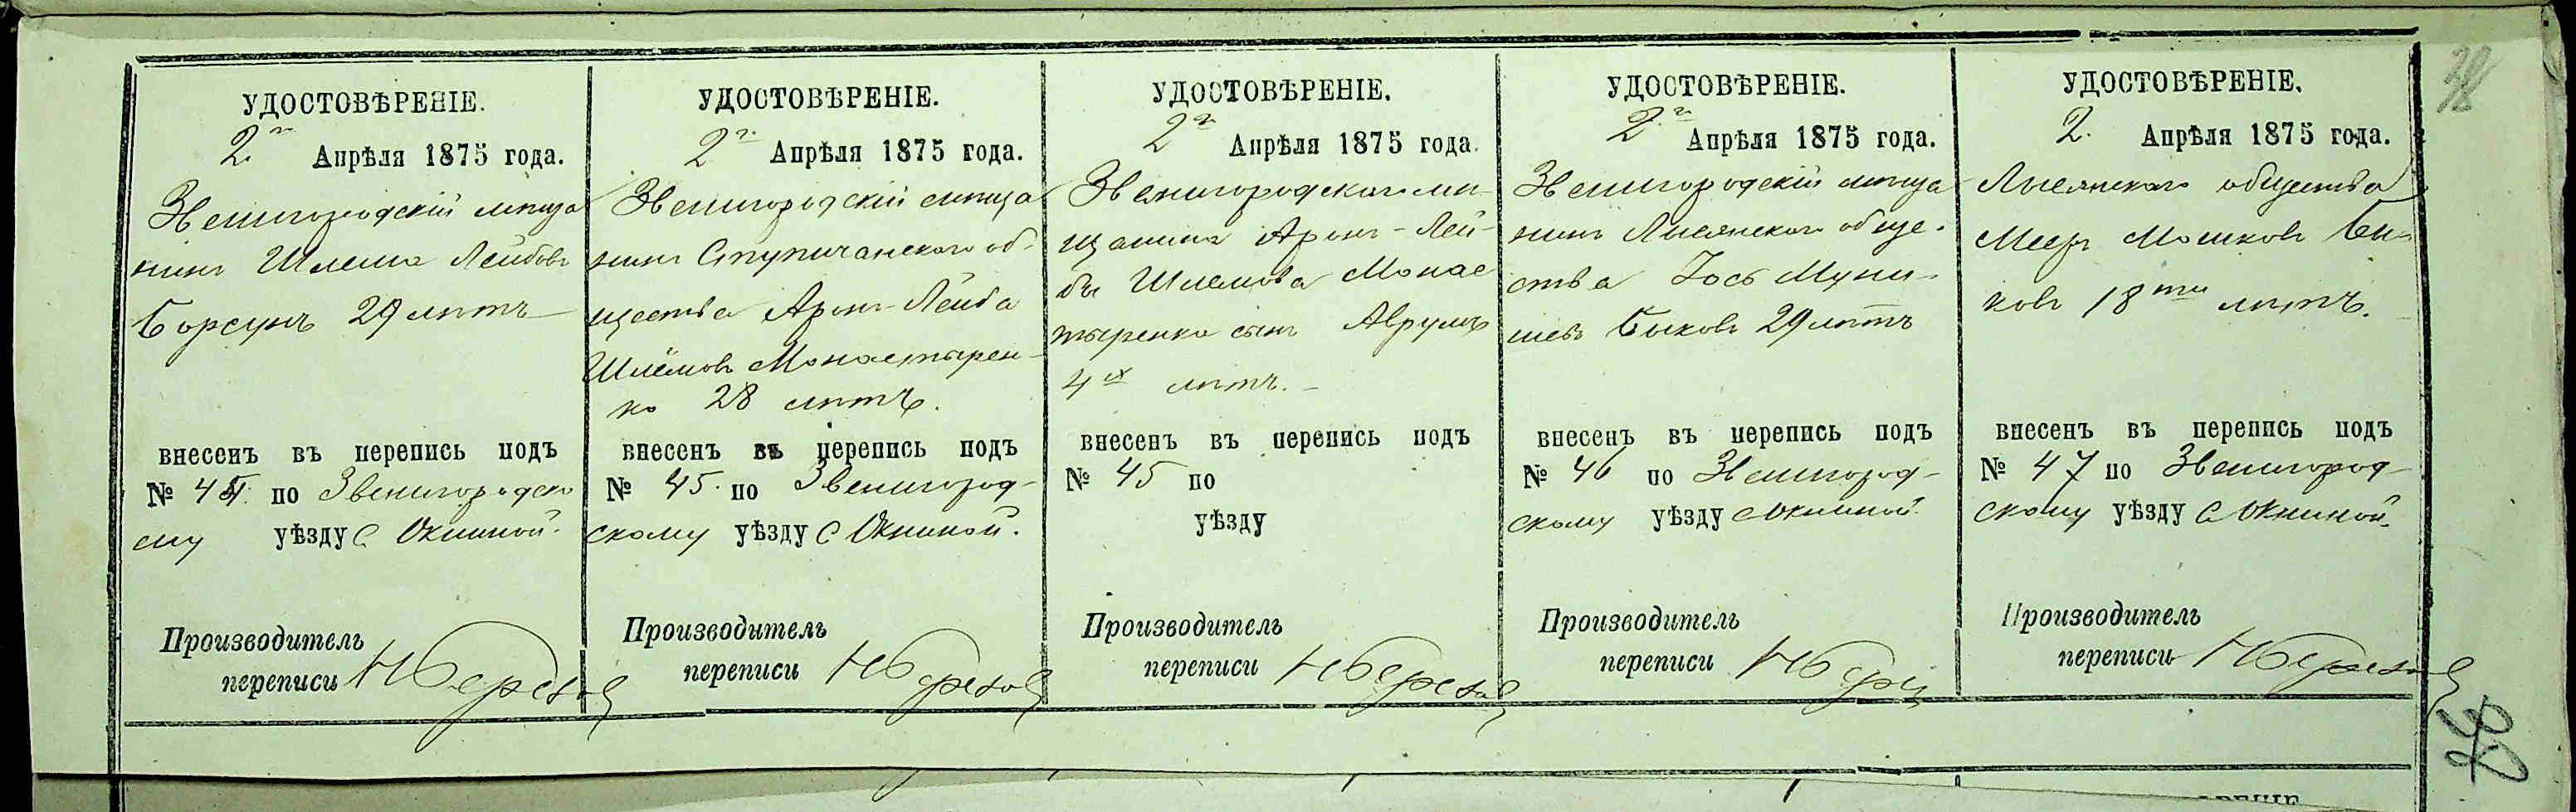 УДОСТОВѢРЕНІЕ.
2го Апрѣля 1875 года.
Звенигородскій мѣща
нинъ Шлема Лейбовъ
Борсукъ 29 лѣтъ
внесенъ въ перепись подъ
№ 44. по Звенигородско
му уѣзду с Окниной.
Производитель
переписи
УДОСТОВѢРЕНІЕ.
2го Апрѣля 1875 года.
Звенигородскій мѣща
нинъ Ступичанскаго об-
щества Аронъ-Лейба
Шлёмовъ Монастырен-
ко 28 лѣтъ.
внесенъ въ перепись подъ
№ 45. по Звенигород-
скому уѣзду с Окниной.
Производитель
переписи
УДОСТОВѢРЕНІЕ.
2го Апрѣля 1875 года.
Звенигородскаго мѣ-
щанина Аронъ-Лей-
бы Шлемова Монас
тыренка сынъ Аврумъ
4х лѣтъ. -
внесенъ въ перепись подъ
№ 45 по
уѣзду
Производитель
переписи
УДОСТОВѢРЕНІЕ.
2го Апрѣля 1875 года.
Звенигородскій мѣща
нинъ Лысянскаго обще-
ства Іось
Быковъ 29 лѣтъ
внесенъ въ перепись подъ
№ 46 по Звенигород-
скому уѣзду с Окниной
Производитель
переписи
УДОСТОВѢРЕНІЕ.
2. Апрѣля 1875 года.
Лысянскаго общества
Меер Мошковъ Бы-
ковъ 18ти лѣтъ.
внесенъ въ перепись подъ
№ 47 по Звенигород-
скому уѣзду с Окниной.
Производитель
переписи